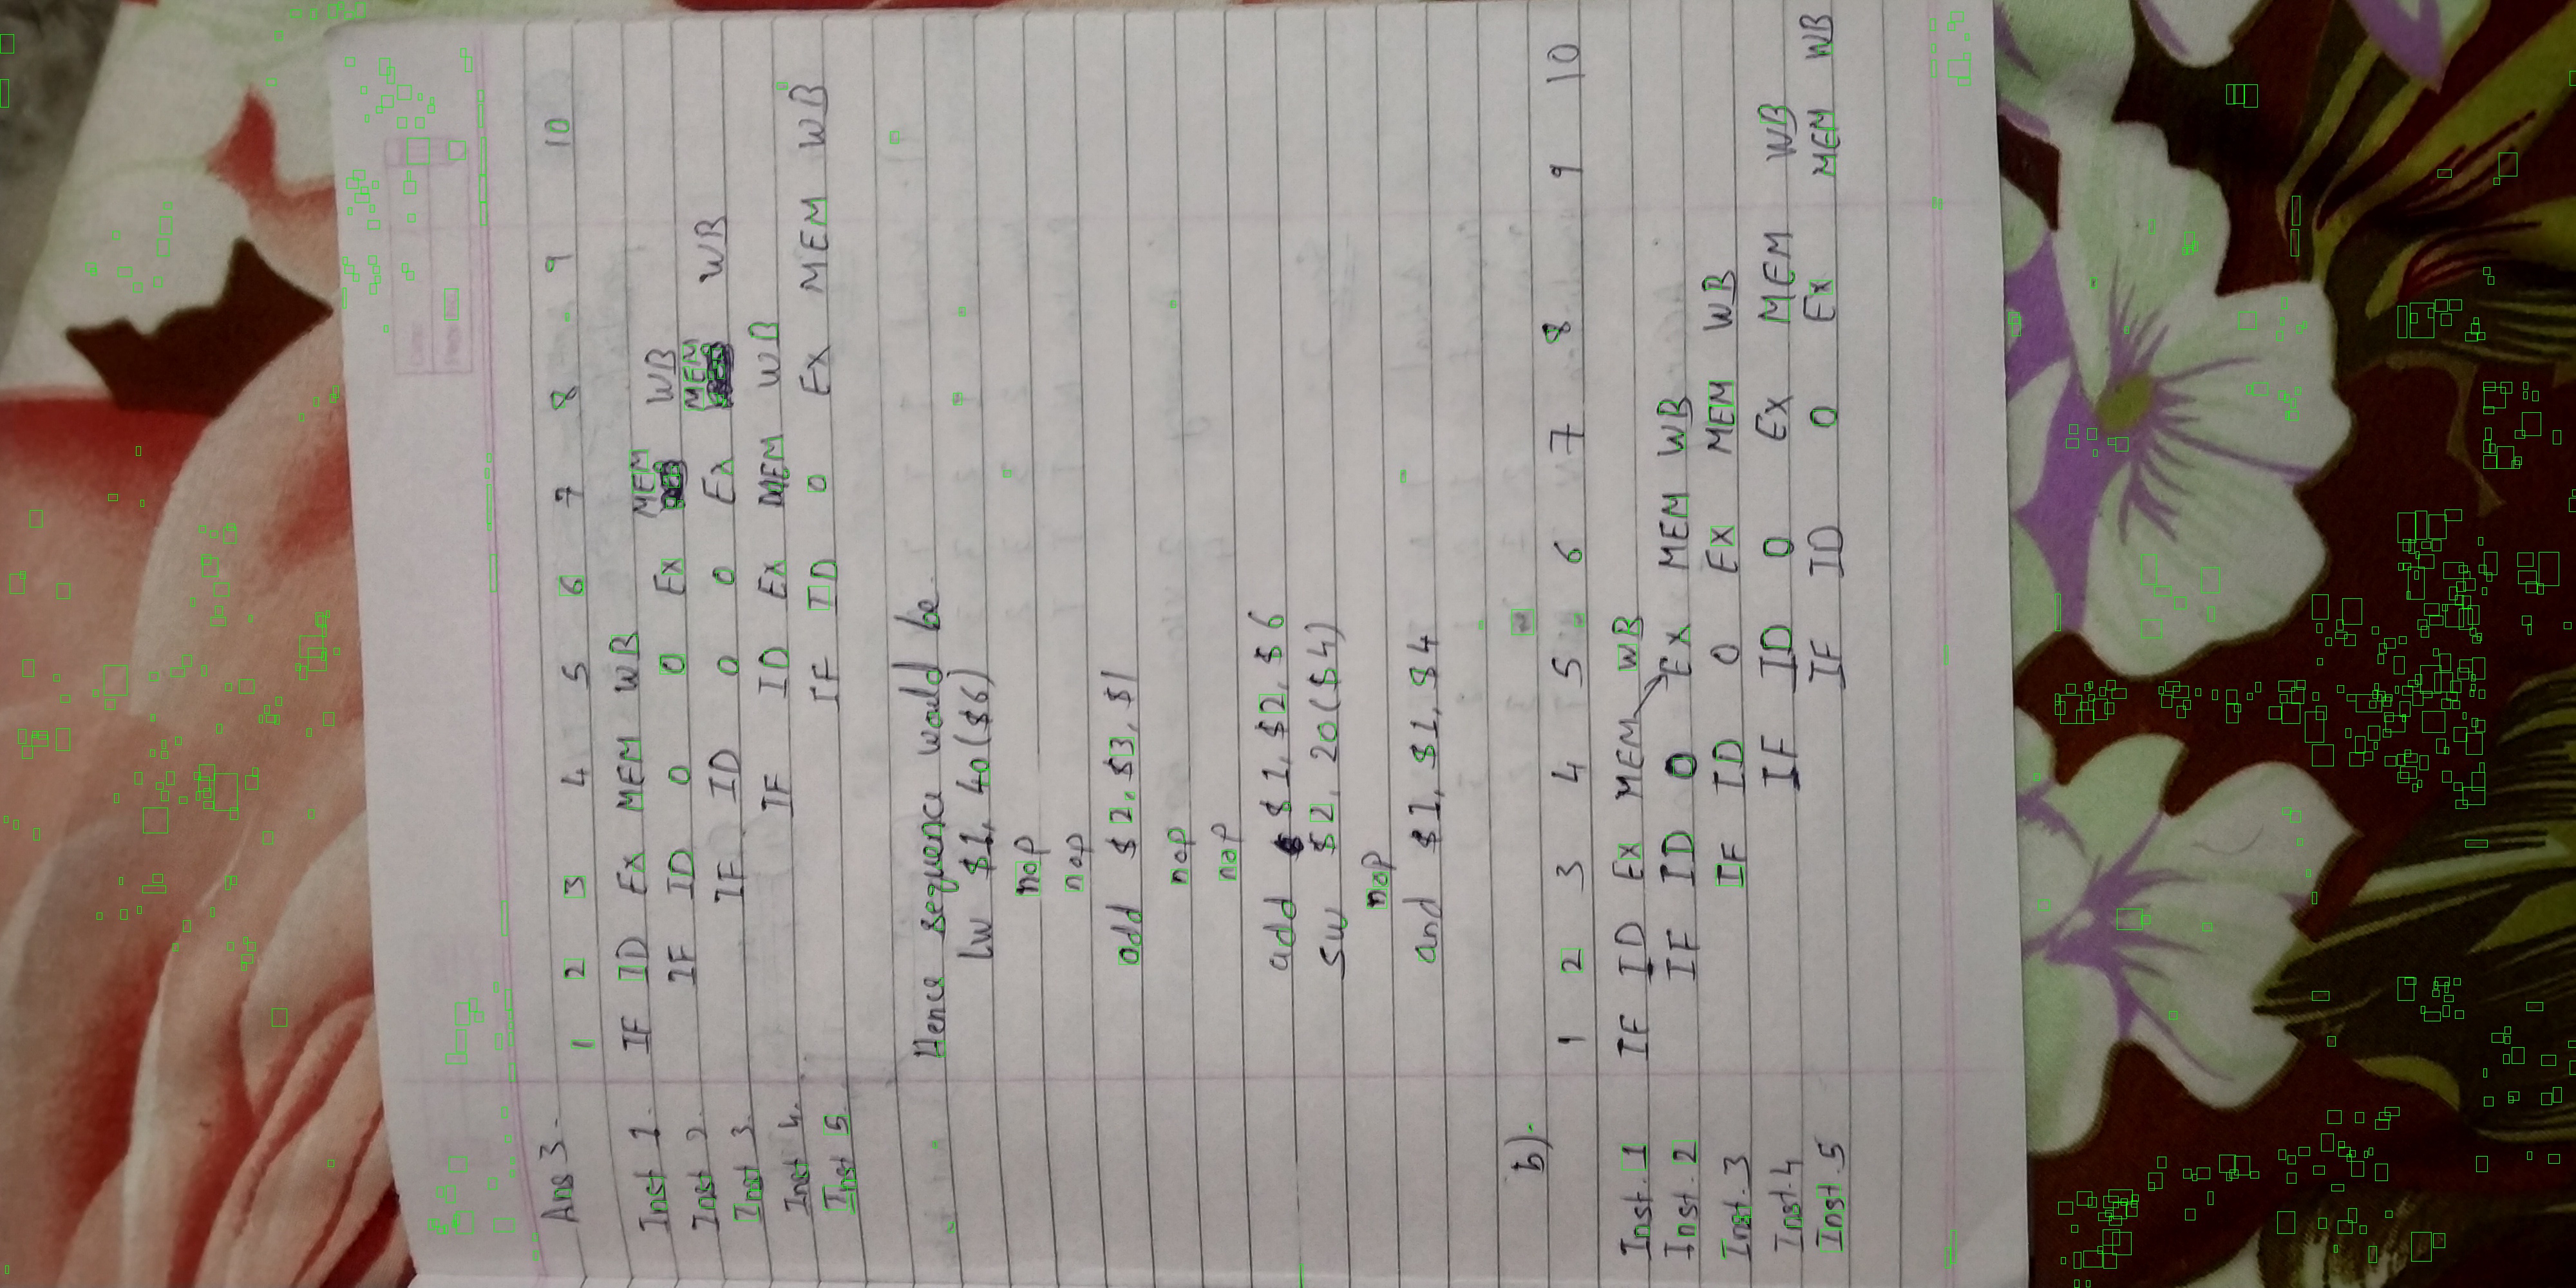 Ans 3.
1 2 3 4 5 6 7 8 9 10
Inst 1. IF ID Ex MEM WB
Inst 2. IF ID 0 0 Ex MEM WB
Inst 3. IF ID 0 0 Ex MEM WB
Inst 4. IF ID Ex MEM WB
Inst 5. IF ID 0 Ex MEM WB
Hence sequence would be
lw $1, 40($6)
nop
nop
add $2, $3, $1
nop
nop
add $1, $2, $6
sw $2, 20($4)
nop
and $1, $1, $4
b).
1 2 3 4 5 6 7 8 9 10
Inst. 1 IF ID Ex MEM WB
Inst. 2 IF ID 0 Ex MEM WB
Inst. 3 IF ID 0 Ex MEM WB
Inst. 4 IF ID 0 Ex MEM WB
Inst. 5 IF ID 0 Ex MEM WB